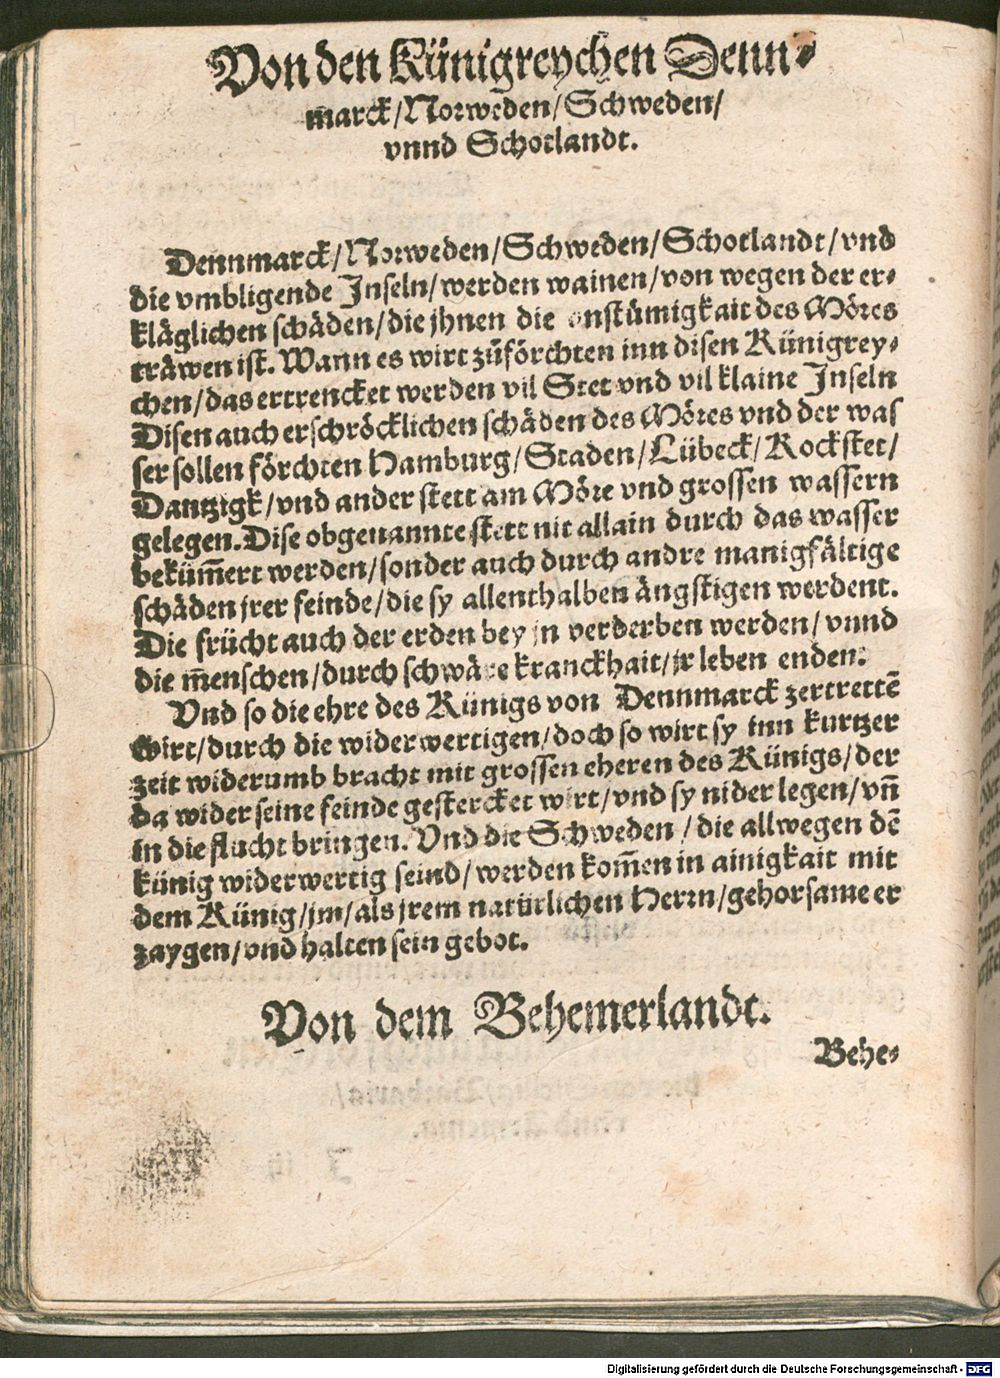 Von den Künigreychen Denn-
marck/Norweden/Schweden/
vnnd Schotlandt.
Dennmarck/Norweden/Schweden/Schotlandt/vnd
die vmbligende Inseln/werden wainen/von wegen der er-
kläglichen schäden/die jhnen die onstümigkait des Möres
träwen ist. Wann es wirt zůförchten inn disen Künigrey-
chen/das ertrencket werden vil Stet vnd vil klaine Inseln
Disen auch erschröcklichen schäden des Möres vnd der was
ser sollen förchten Hamburg/Staden/Lübeck/Rockstet/
Dantzigk/vnd ander stett am Möre vnd grossen wassern
gelegen. Dise obgenannte stett nit allain durch das wasser
bekům̄ert werden/sonder auch durch andre manigfältige
schäden jrer feinde/die sy allenthalben ängstigen werdent.
Die frücht auch der erden bey jn verderben werden/vnnd
die m̄enschen/durch schwäre kranckhait/jr leben enden.
Vnd so die ehre des Künigs von Dennmarck zertrettē
wirt/durch die widerwertigen/doch so wirt sy inn kurtzer
zeit widerumb bracht mit grossen eheren des Künigs/der
da wider seine feinde gestercket wirt/vnd sy nider legen/vn̄
in die flucht bringen. Vnd die Schweden/die allwegen dē
künig widerwertig seind/werden kom̄en in ainigkait mit
dem Künig/jm/als jrem natürlichen Herrn/gehorsame er
zaygen/vnd halten sein gebot.
Von dem Behemerlandt.
Behe-
Digitalisierung gefördert durch die Deutsche Forschungsgemeinschaft - DFG